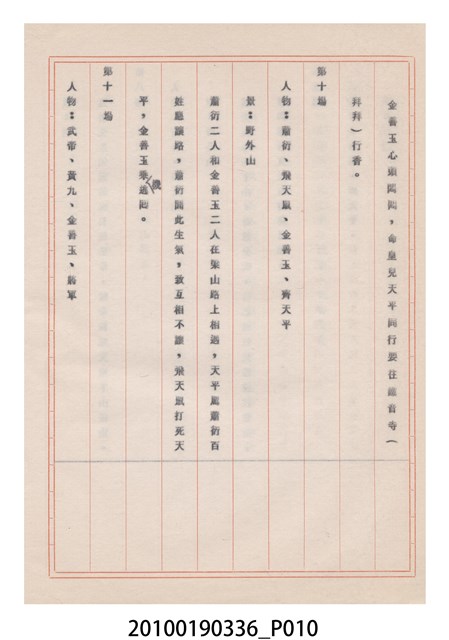 金善玉心頭悶悶，命皇兒天平同行要往龍首寺（
拜拜）行香。
第十場
人物：蕭衍、飛天鼠、金善玉、齊天平
景：野外山
蕭衍二人和金善玉二人在梁山路上相遇，天平罵蕭衍百
姓應讓路，蕭衍聞此生氣，故互相不讓，飛天鼠打死天
平，金善玉乘機逃回。
第十一場
人物：武帝、黃九、金善玉、將軍
20100190336_P010